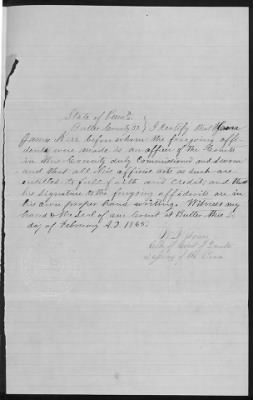 State of Penn'a
Butler County SS } I certify that
James Kerr before whom the foregoing affi
davits were made is an officer of the
in this County duly Commissioned and sworn
and that all his official acts as such are
entitled to full faith and credit; and that
his signature to the foregoing affidavits are in
his own proper hand writing. Witness my
hand & the Seal of our Court at Butler this
day of February A.D. 1865.